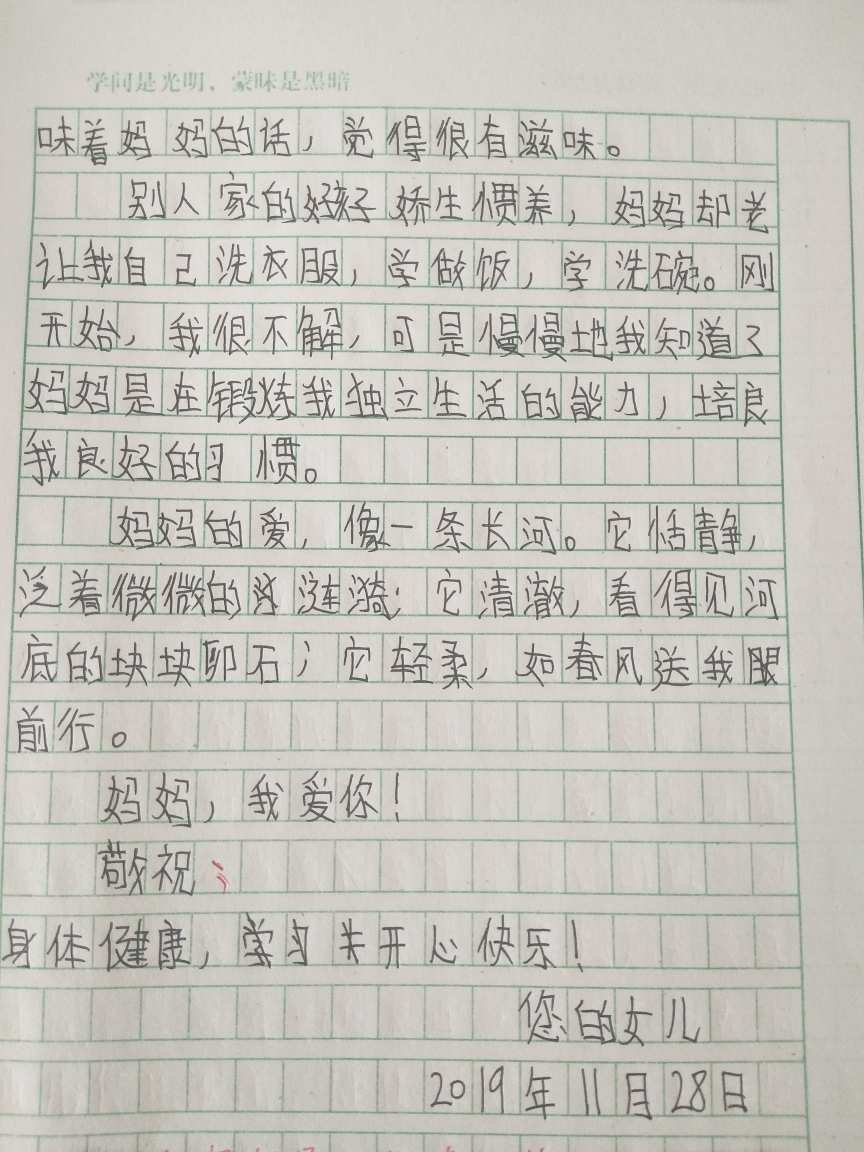 学问是光明，蒙昧是黑暗
味着妈妈的话，觉得很有滋味。
别人家的好孩子娇生惯养，妈妈却老
让我自己洗衣服，学做饭，学洗碗。刚
开始，我很不解，可是慢慢地我知道了
妈妈是在锻炼我独立生活的能力，培良
我良好的习惯。
妈妈的爱，像一条长河。它恬静，
泛着微微的涟漪；它清澈，看得见河
底的块块卵石；它轻柔，如春风送我
前行。
妈妈，我爱你！
敬祝：
身体健康，学习 开心快乐！
您的女儿
2019年11月28日